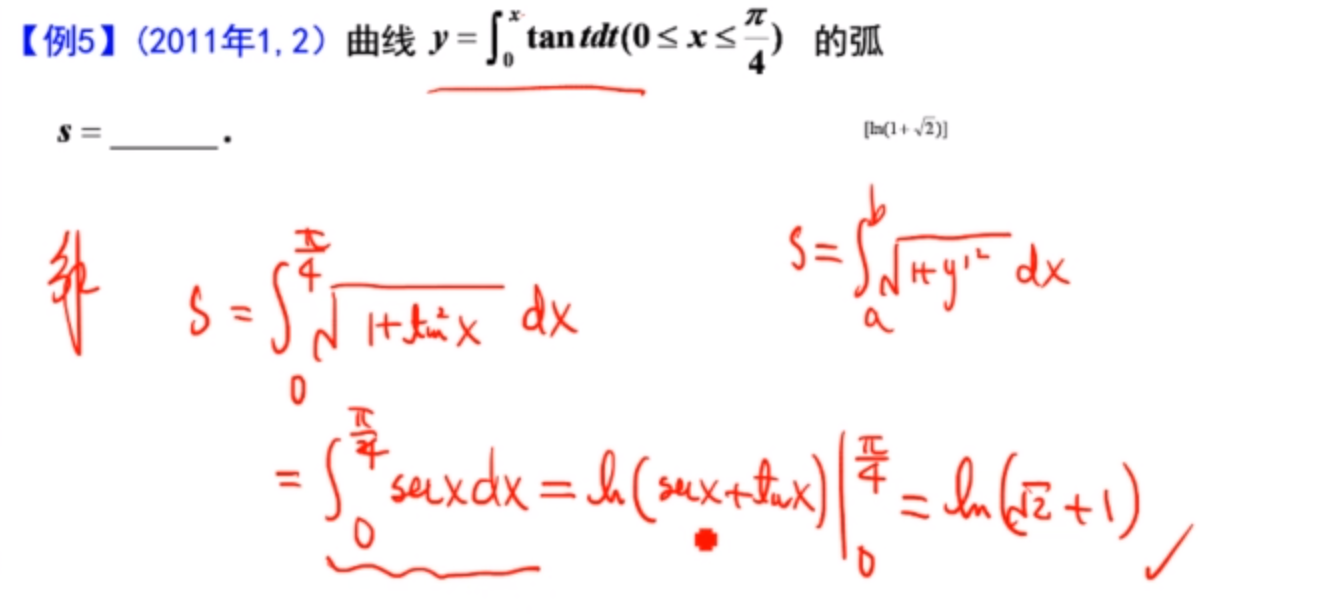 【例5】(2011年1,2) 曲线 y = ∫₀ˣ tan tdt (0 ≤ x ≤ π/4) 的弧
s = ______ .
[ln(1+√2)]
解 S = ∫₀^(π/4) √(1+tan²x) dx
S = ∫ₐᵇ √(1+y'²) dx
= ∫₀^(π/4) secx dx = ln(secx+tanx) |₀^(π/4) = ln(√2+1) ✓